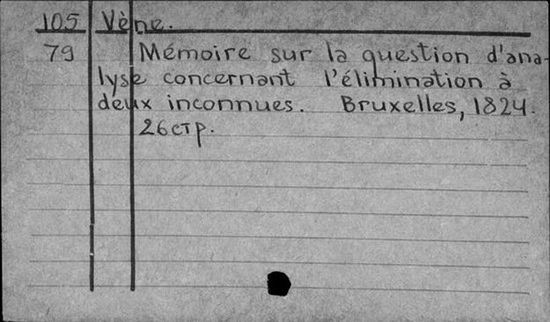 105 Vène.
79 Mémoire sur la question d'ana-
lyse concernant l'élimination à
deux inconnues. Bruxelles, 1824.
26стр.